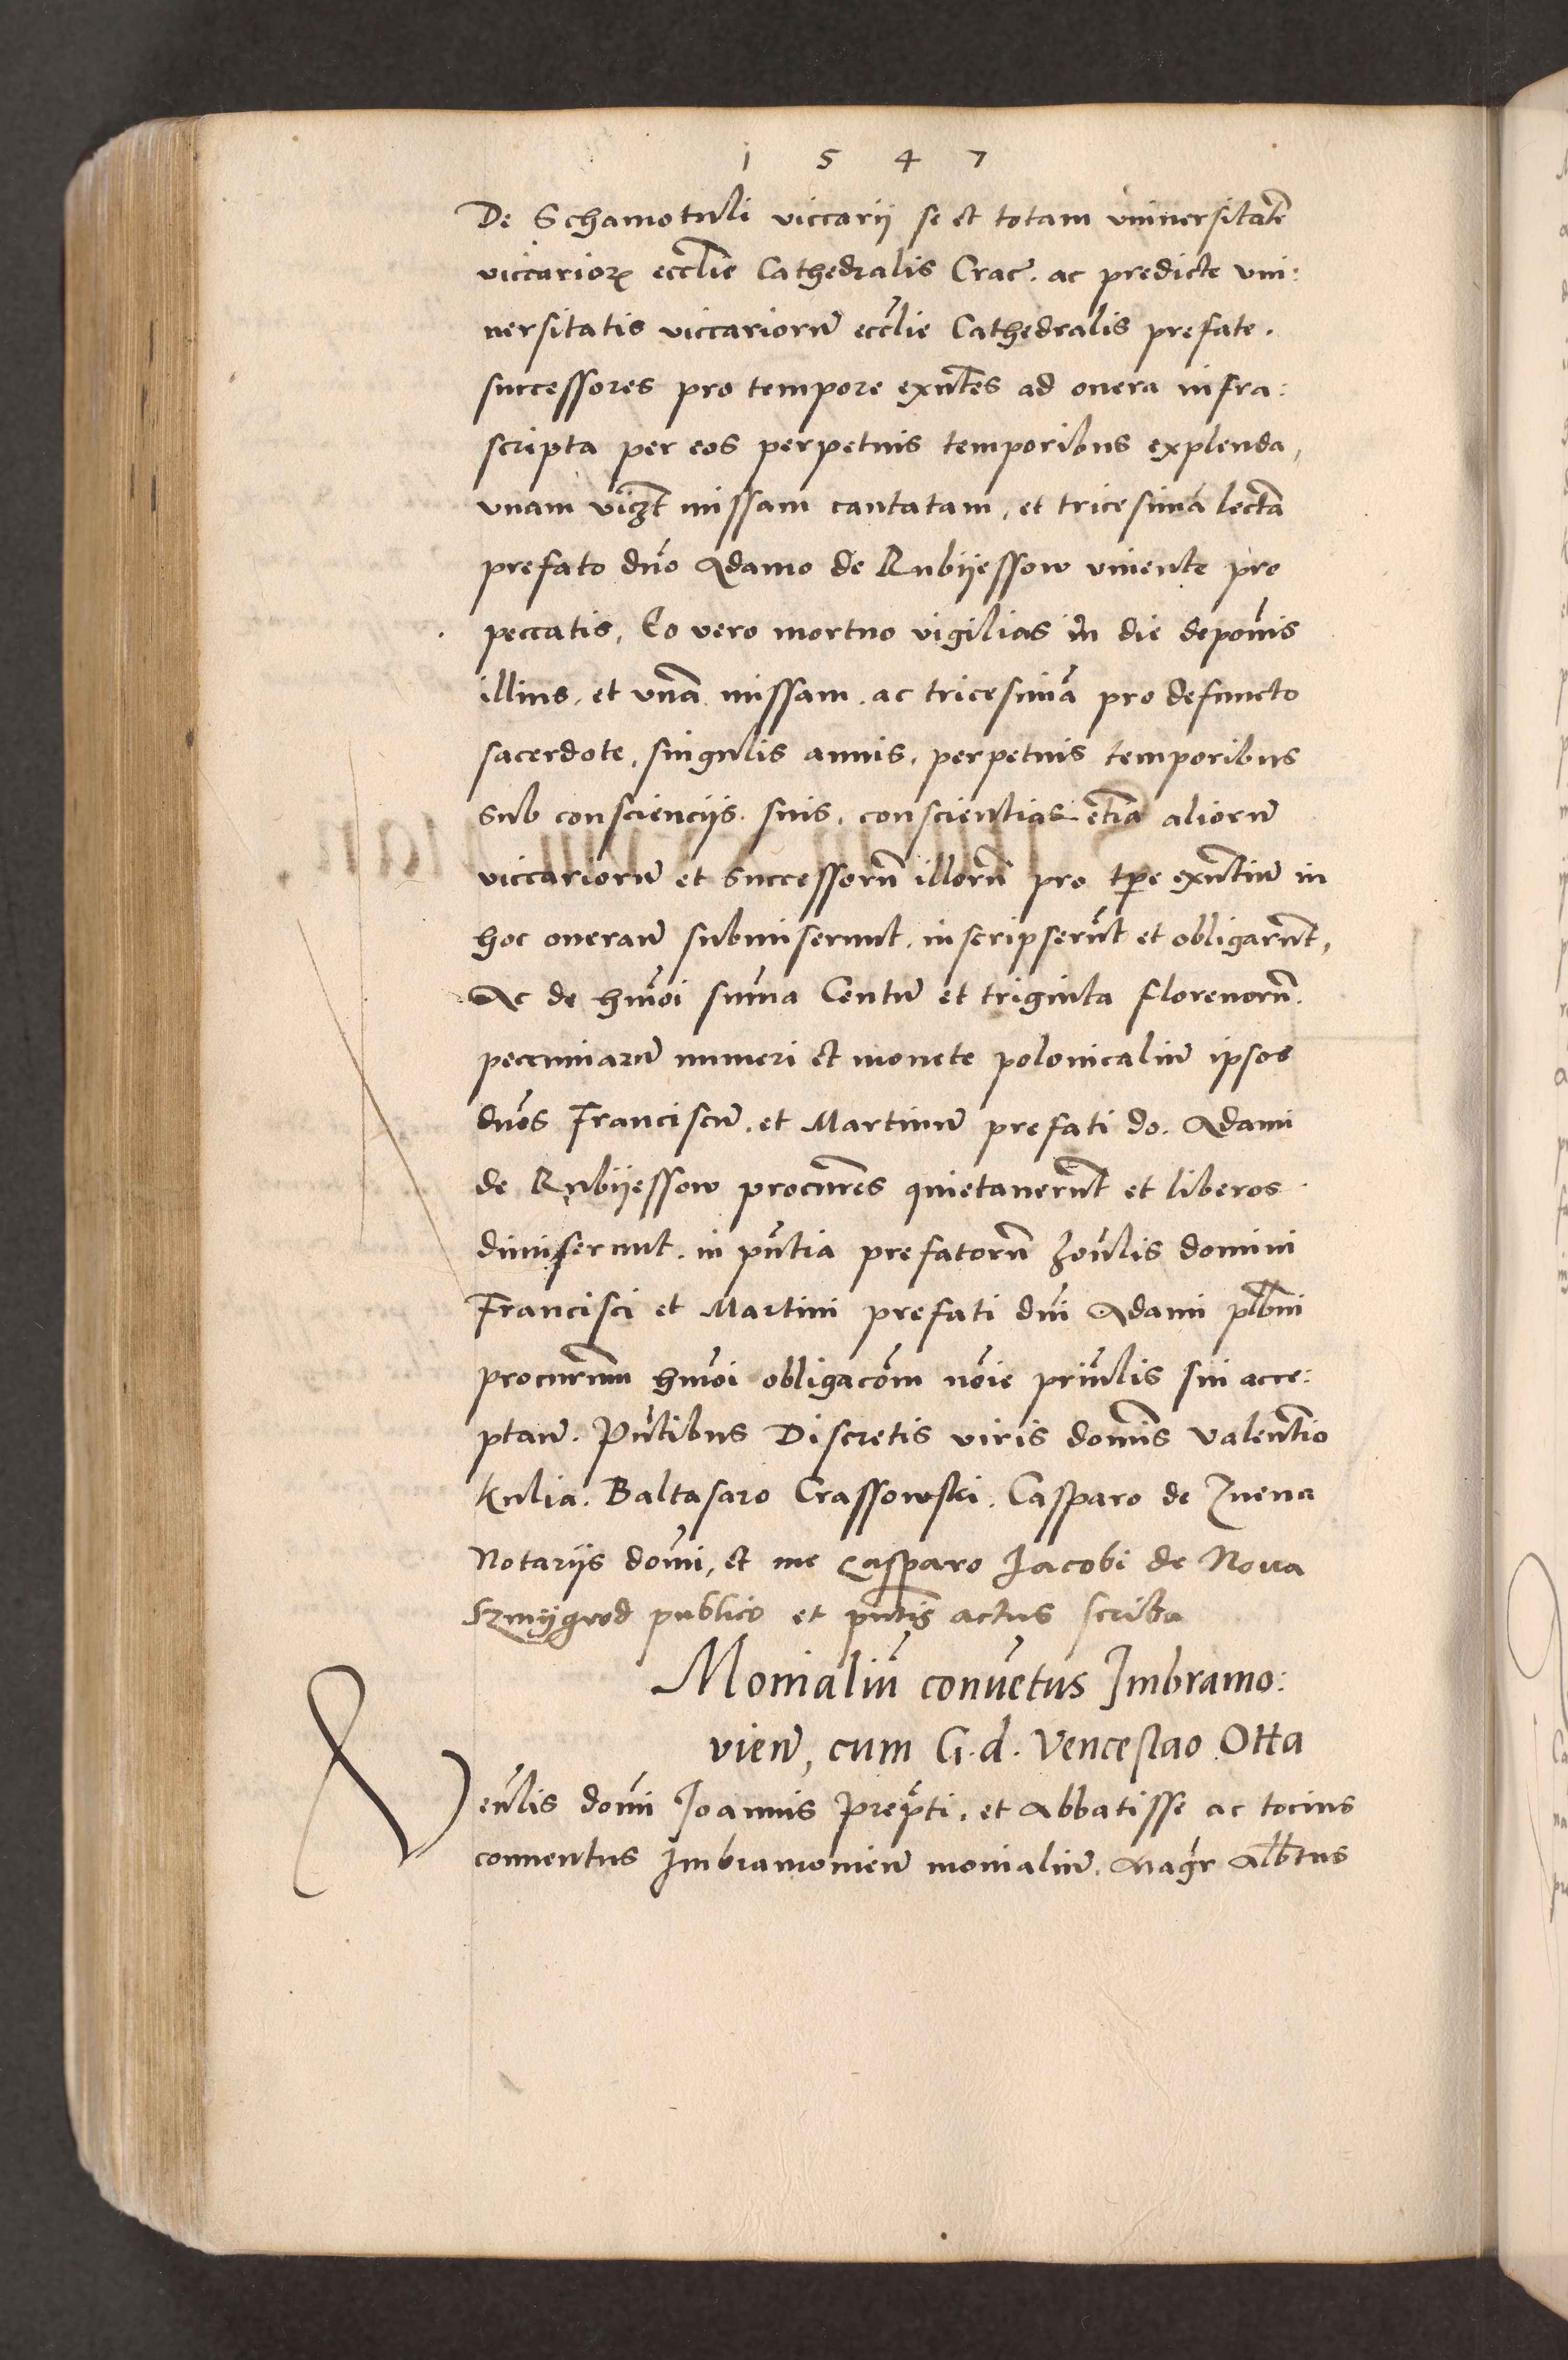 1 5 4 7
De Schamotuli viccarij se et totam vniuersitatē
viccarioꝝ eccl̄ie Cathedralis Crac̄. ac predicte vni:
uersitatis viccariorū eccl̄ie Cathedralis prefate.
successores pro tempore exn̄tes ad onera infra:
scripta per eos perpetuis temporibus explenda,
vnam vicꝫt missam cantatam, et tricesimā lectā
prefato dn̄o Adamo de Rubijessow viuente pro
peccatis, Eo vero mortuo vigilias in die depōnis
illius, et vnā missam. ac tricesimā pro defuncto
sacerdote, singulis annis, perpetuis temporibus
sub conscienciis. suis, conscientias etiā aliorū
viccariorū et successorū illorū pro tp̄e exn̄tiū in
hoc onerarū submiserunt, inscripserūt et obligarūt,
Ac de hmōi sum̄a Centū et triginta florenorū.
peccuniarū numeri et monete polonicaliū ipsos
dn̄os Franciscū, et Martinū prefati do. Adami
de Rubijessow procurēs quietauerūt et liberos
dimiserunt. in pn̄tia prefatorū ho͞nlis domini
Francisci et Martini prefati dn̄i Adami pl̄bni
procurm̄m hmōi obligacōm nōie prin̄lis sui acce:
ptan̄. Pn̄tibus Discretis viris domīs Valentīo
Kulia. Baltasaro Crassowski. Casparo de Znena
Notarijs dom̄i, et me Casparo Jacobi de Noua
Szmijgrod publico et pn̄tis actus scriba
Monialiū conuētus Imbramo:
vien̄, cum G. d. Venceslao Otta
Ven̄lis dom̄i Joannis Prep̄ti, et Abbatisse ac tocius
conuentus Imbramouien̄ monialiū. Magr̄ Alb̄tus